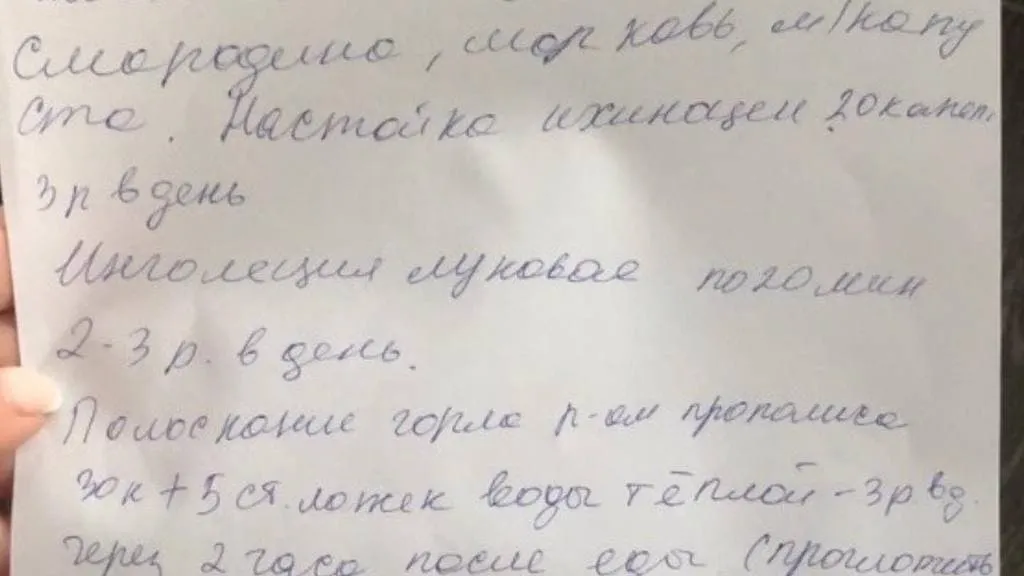 Смородина, морковь, м/капу
ста. Настойка ихинацеи 20капель
3р в день
Инголяция луковая по 20 мин
2-3 р. в день.
Полоскание горла р-ом прополиса
30к + 5 ст. ложек воды тёплой - 3р в д.
через 2 часа после еды (проглотить